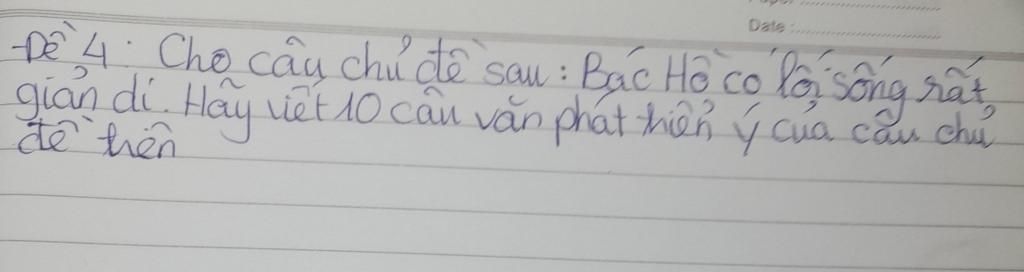 Date :
-Đề 4: Cho câu chủ đề sau: Bác Hồ có lối sống rất
giản dị. Hãy viết 10 câu văn phát triển ý của câu chủ
đề trên